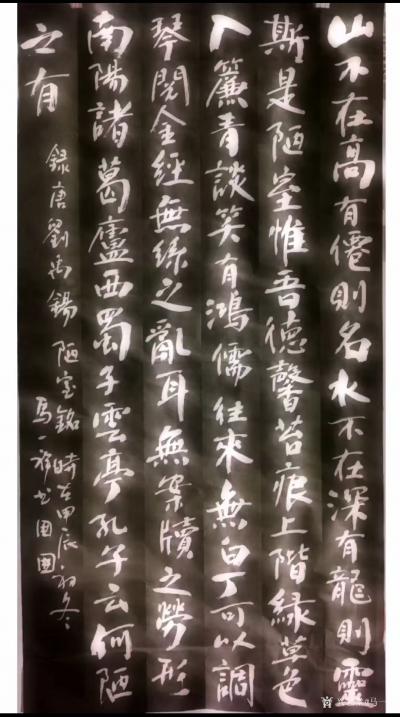 山不在高有僊則名水不在深有龍則靈
斯是陋室惟吾德馨苔痕上階緑草色
入簾青談笑有鴻儒往來無白丁可以調
琴閱金經無絲之亂耳無案牘之勞形
南陽諸葛廬西蜀子雲亭孔子云何陋
之有
錄唐劉禹錫陋室銘時在甲辰初冬
馬一書